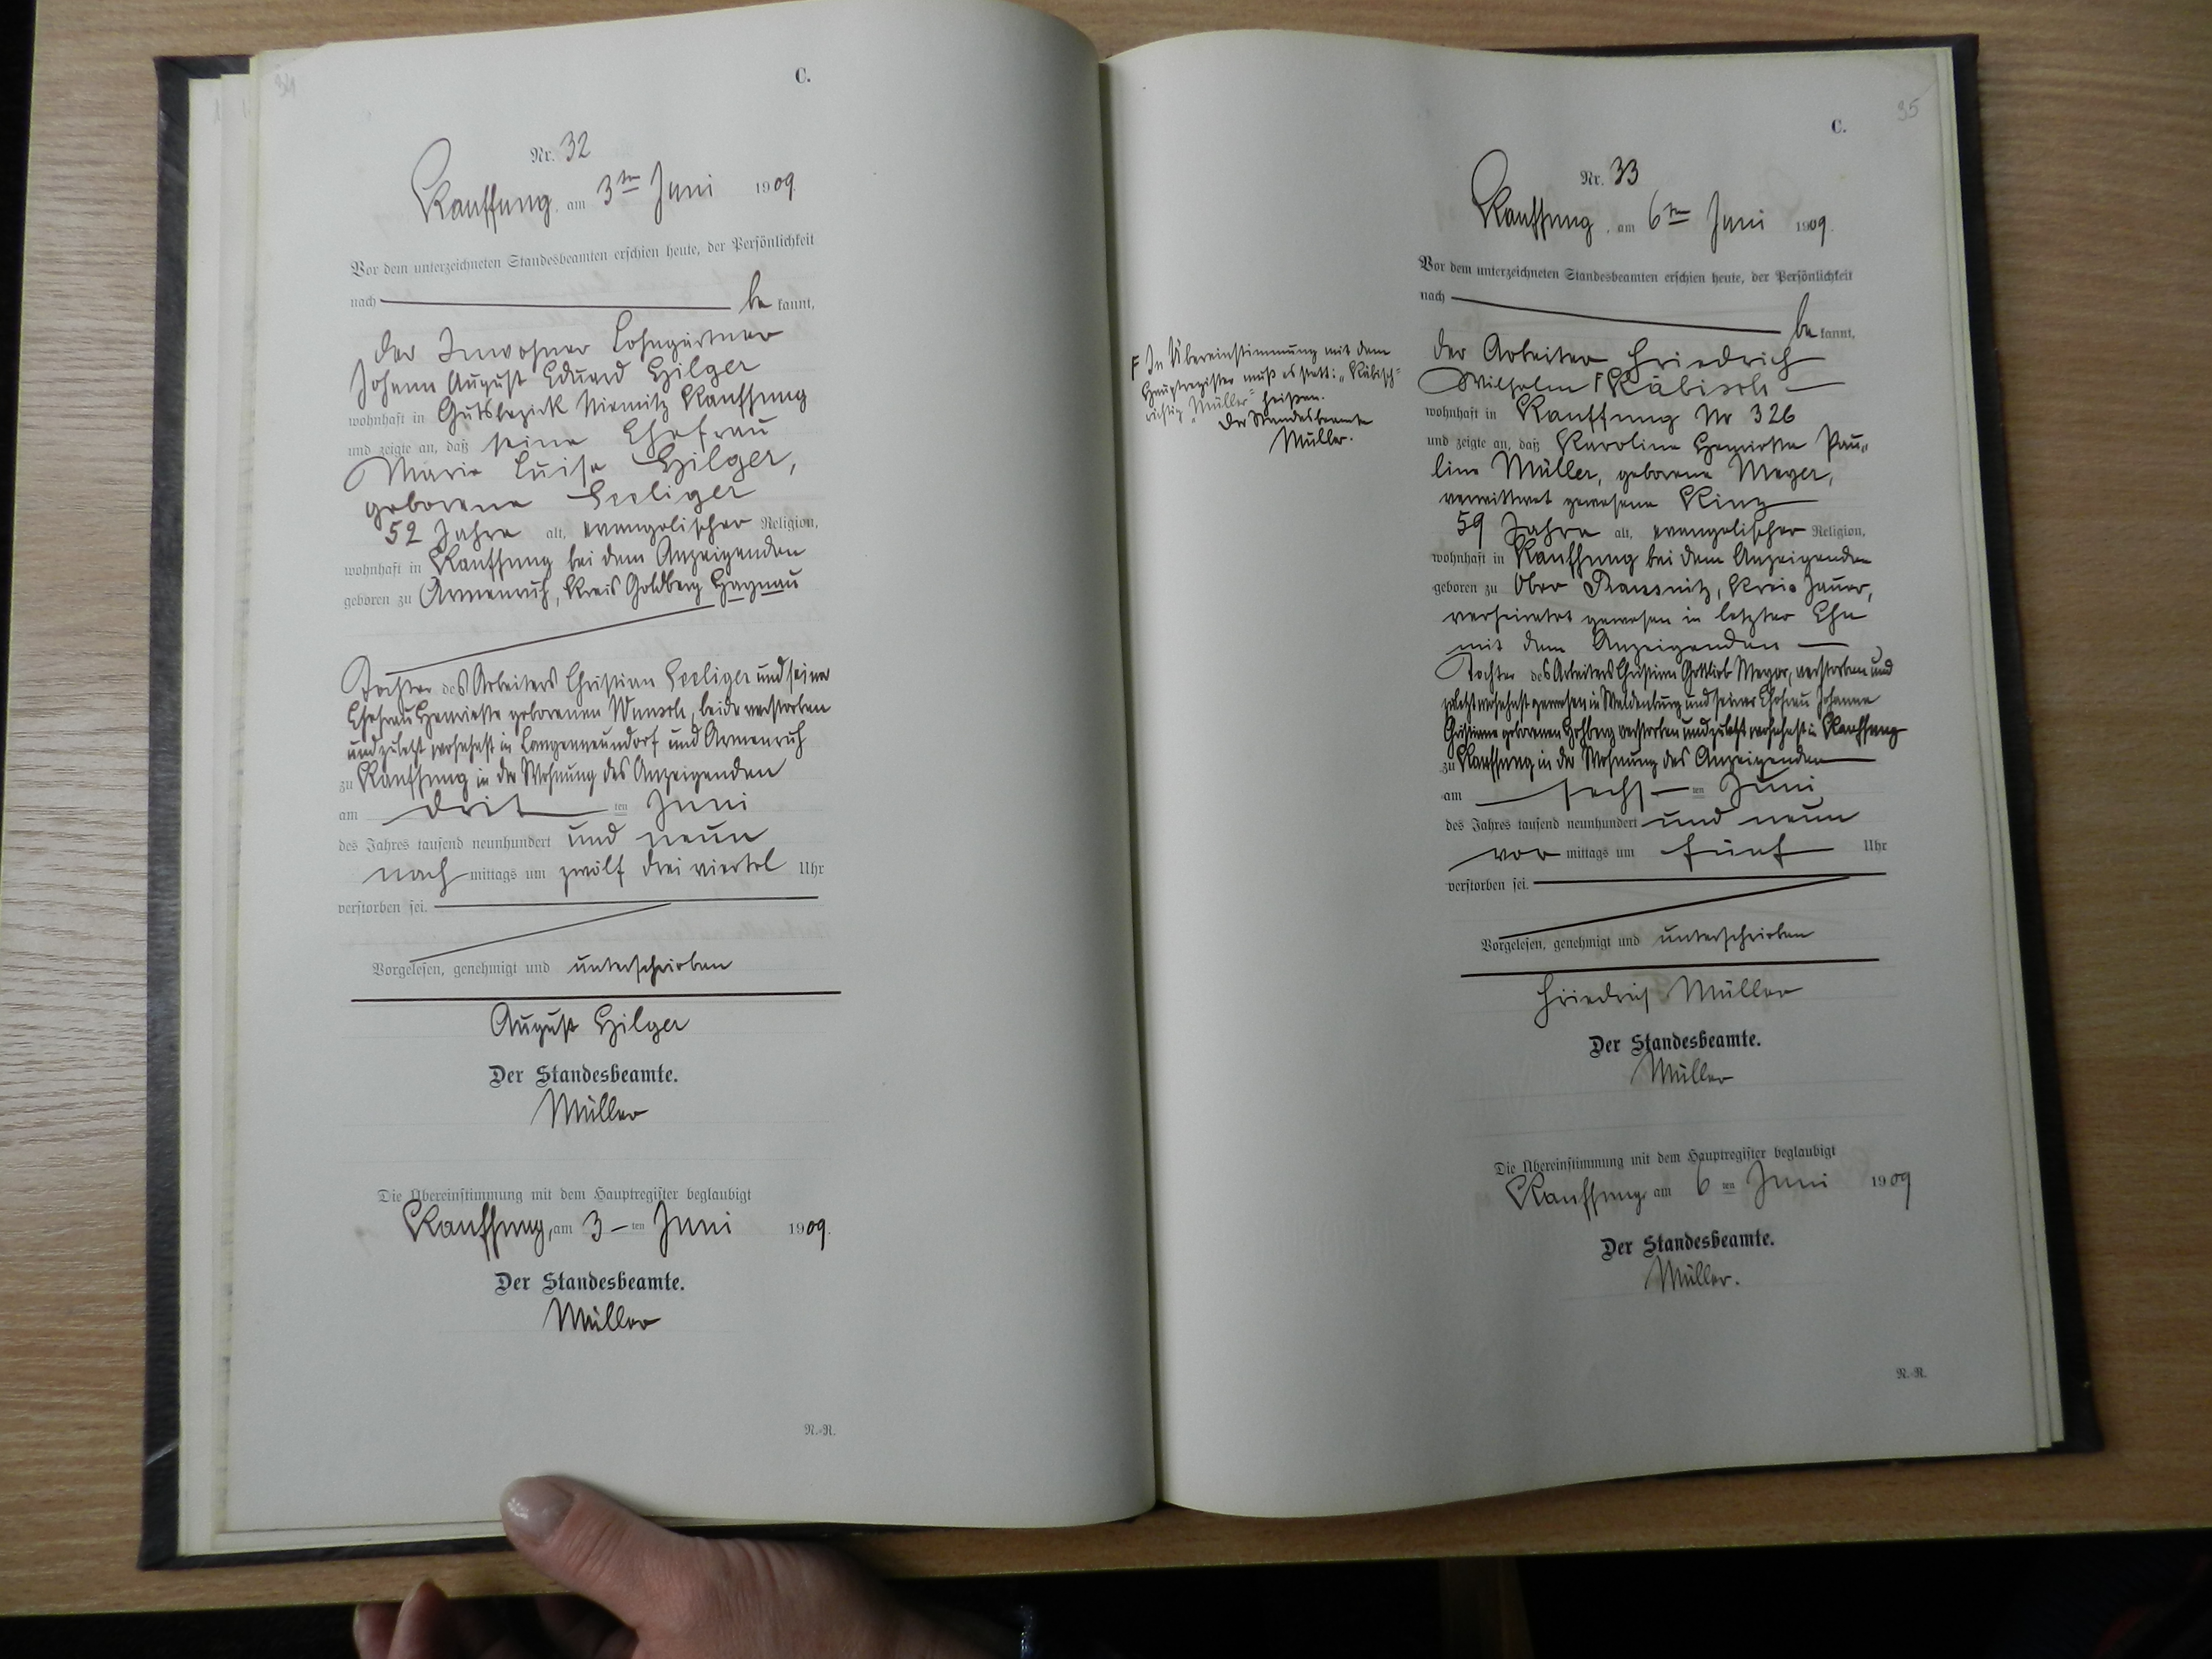 34
C.
Nr. 32
Kauffung, am 3ten Juni 1909.
Vor dem unterzeichneten Standesbeamten erschien heute, der Persönlichkeit
nach be kannt,
der Inwohner Lohngärtner
Johann August Eduard Hilger
wohnhaft in Gutsbezirk Niemitz Kauffung
und zeigte an, daß seine Ehefrau
Maria Luise Hilger,
geborene Seeliger
52 Jahre alt, evangelischer Religion,
wohnhaft in Kauffung bei dem Anzeigenden
geboren zu Armenruh, Kreis Goldberg Haynau
Tochter des Arbeiters Christian Seeliger und seiner
Ehefrau Henriette geborenen Wunsch, beide verstorben
und zuletzt wohnhaft in Langenneundorf und Armenruh
zu Kauffung in der Wohnung des Anzeigenden
am drit ten Juni
des Jahres tausend neunhundert und neun
nach mittags um zwölf drei viertel Uhr
verstorben sei.
Vorgelesen, genehmigt und unterschrieben
August Hilger
Der Standesbeamte.
Müller
Die Übereinstimmung mit dem Hauptregister beglaubigt
Kauffung, am 3 ten Juni 1909.
Der Standesbeamte.
Müller
N.-R.
35
C.
Nr. 33
Kauffung, am 6ten Juni 1909.
Vor dem unterzeichneten Standesbeamten erschien heute, der Persönlichkeit
nach be kannt,
der Arbeiter Friedrich
Wilhelm F Käbisch
wohnhaft in Kauffung Nr 326
und zeigte an, daß Karoline Henriette Pau„
line Müller, geborene Meyer,
verwittwet gewesene Kinz
59 Jahre alt, evangelischer Religion,
wohnhaft in Kauffung bei dem Anzeigenden
geboren zu Ober Kreis Jauer,
verheiratet gewesen in letzter Ehe
mit dem Anzeigenden
Tochter des Arbeiters Christian Gottlieb Meyer, verstorben und
zuletzt wohnhaft gewesen in Waldenburg und seiner Ehefrau Johanne
Christiane geborenen verstorben und zuletzt wohnhaft in Kauffung
zu Kauffung in der Wohnung des Anzeigenden
am sechs ten Juni
des Jahres tausend neunhundert und neun
vor mittags um fünf Uhr
verstorben sei.
Vorgelesen, genehmigt und unterschrieben
Friedrich Müller
Der Standesbeamte.
Müller
Die Übereinstimmung mit dem Hauptregister beglaubigt
Kauffung, am 6 ten Juni 1909
Der Standesbeamte.
Müller.
N.-R.
F In Übereinstimmung mit dem
Hauptregister muß es statt: „Käbisch"
richtig „Müller" heißen.
Der Standesbeamte
Müller.